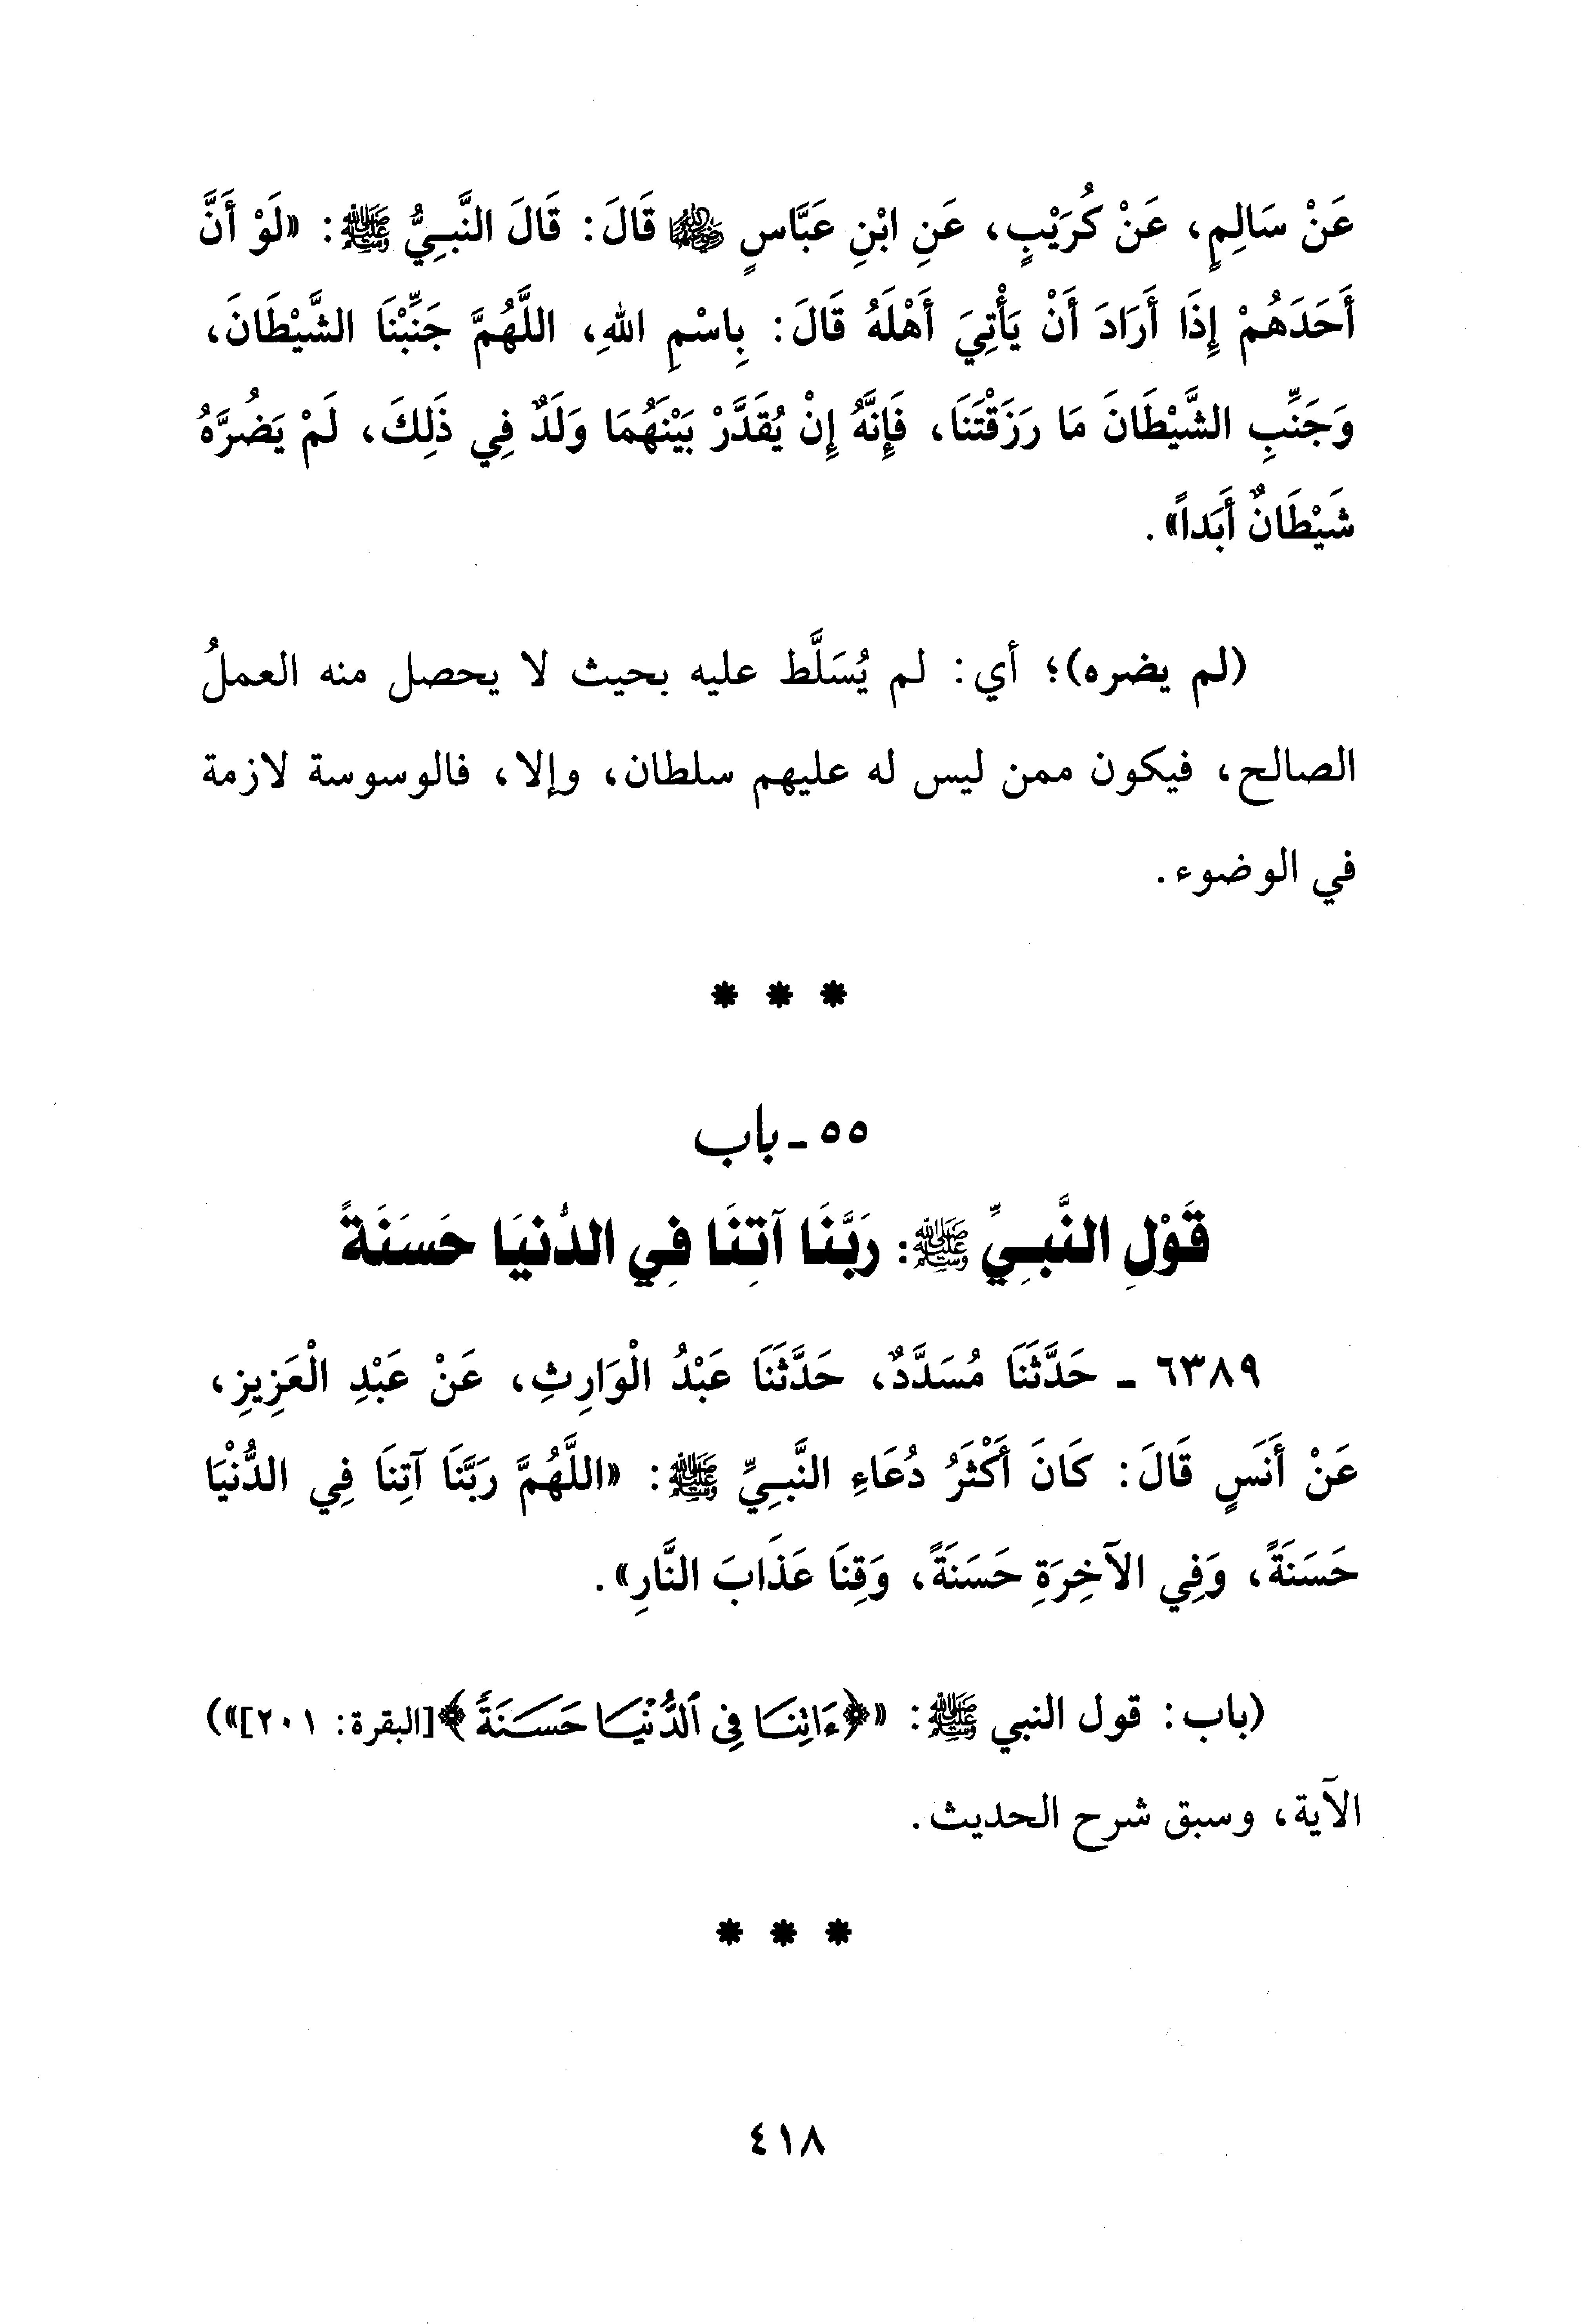 عَنْ سَالِمٍ، عَنْ كُرَيْبٍ، عَنِ ابْنِ عَبَّاسٍ ﵄ قَالَ: قَالَ النَّبِيُّ ﷺ: «لَوْ أَنَّ
أَحَدَهُمْ إِذَا أَرَادَ أَنْ يَأْتِيَ أَهْلَهُ قَالَ: بِاسْمِ اللهِ، اللَّهُمَّ جَنِّبْنَا الشَّيْطَانَ،
وَجَنِّبِ الشَّيْطَانَ مَا رَزَقْتَنَا، فَإِنَّهُ إِنْ يُقَدَّرْ بَيْنَهُمَا وَلَدٌ فِي ذَلِكَ، لَمْ يَضُرَّهُ
شَيْطَانٌ أَبَداً».
(لم يضره)؛ أي: لم يُسَلَّط عليه بحيث لا يحصل منه العملُ
الصالح، فيكون ممن ليس له عليهم سلطان، وإلا، فالوسوسة لازمة
في الوضوء.
* * *
٥٥ ـ باب
قَوْلِ النَّبِيِّ ﷺ: رَبَّنَا آتِنَا فِي الدُّنيَا حَسَنَةً
٦٣٨٩ ـ حَدَّثَنَا مُسَدَّدٌ، حَدَّثَنَا عَبْدُ الْوَارِثِ، عَنْ عَبْدِ الْعَزِيزِ،
عَنْ أَنَسٍ قَالَ: كَانَ أَكْثَرُ دُعَاءِ النَّبِيِّ ﷺ: «اللَّهُمَّ رَبَّنَا آتِنَا فِي الدُّنْيَا
حَسَنَةً، وَفِي الآخِرَةِ حَسَنَةً، وَقِنَا عَذَابَ النَّارِ».
(باب: قول النبي ﷺ: «﴿ءَاتِنَا فِي ٱلدُّنْيَا حَسَنَةً﴾[البقرة: ٢٠١]»)
الآية، وسبق شرح الحديث.
* * *
٤١٨